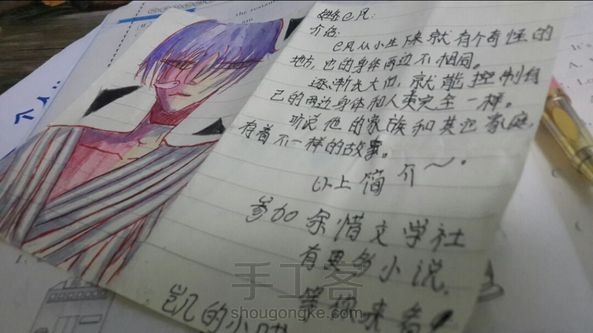 姓名:凡:
介绍:
凡从小生下来就有个奇怪的
地方,他的身体两边不相同。
逐渐长大后,就能控制自
己的两边身体和人类完全一样。
听说他的家族和其它家庭
有着不一样的故事。
以上简介~.
参加余惜文学社
有更多小说,
等你来看!
凯的小
手工客
shougongke.com